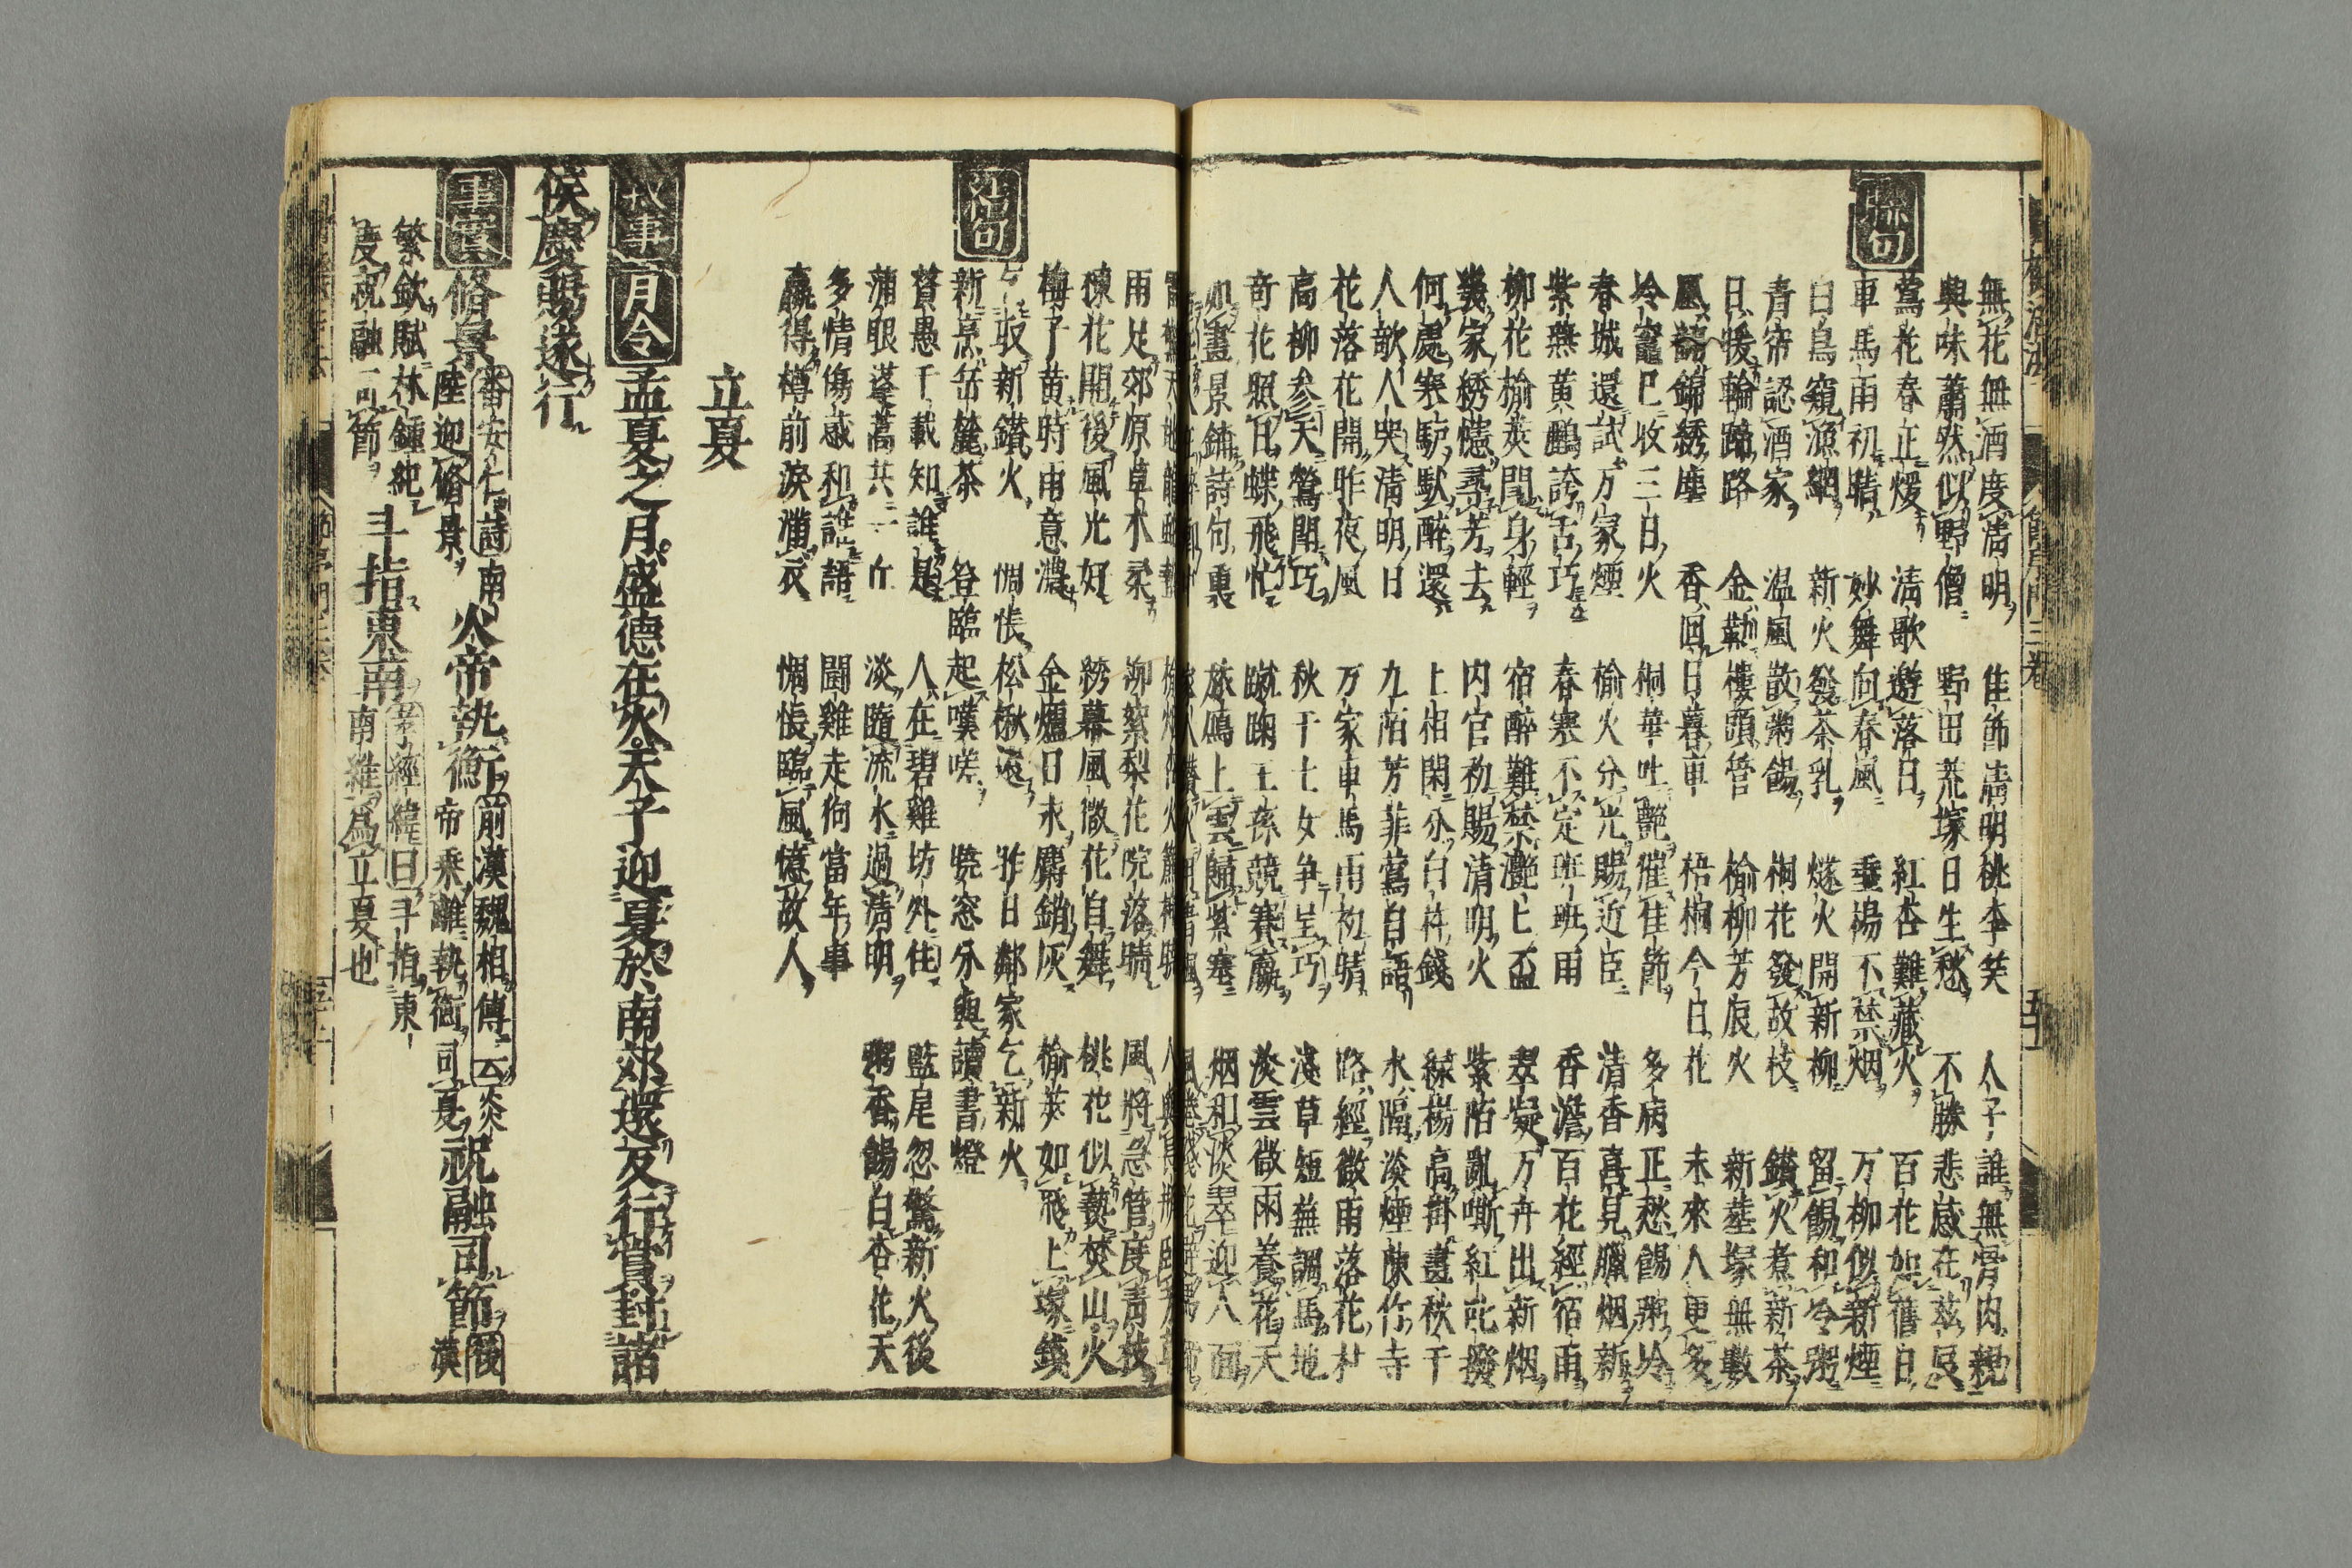 無花無酒度清明 佳節清明桃李笑 人子誰無骨肉親
興味蕭然似野僧 野田荒塚日生愁 不勝悲感在茲辰
聯句
鶯花春正煖 清歌邀落日 紅杏難藏火 百花如舊日
車馬雨初晴 妙舞向春風 垂楊不禁烟 万柳似新煙
白鳥窺漁網 新火發茶乳 燧火開新柳 留餳和冷粥
青帘認酒家 温風散粥餳 桐花發故枝 鑚火煮新茶
日暖輪蹄路 金勒樓頭管 榆柳芳辰火 新塋塚無數
風 錦綉塵 香回日暮車 梧桐今日花 未來人更多
冷竈已收三日火 桐華吐艶催佳節 多病正愁餳粥冷
春城還試万家煙 榆火分光賜近臣 清香真見臘烟新
紫燕黄鸝誇舌巧 春寒不定班班雨 香澹百花經宿雨
柳花榆莢閗身輕 宿醉難禁灧灧盃 翠凝万井出新烟
幾家綉幰尋芳去 内官初賜清明火 紫陌亂嘶紅叱撥
何處寒驢馱醉還 上相閑分白打錢 緑楊高掛畫秋千
人歌人哭清明日 九陌芳菲鶯自語 水隔淡煙陳竹寺
花落花開昨夜風 万家車馬雨初晴 路經微雨落花村
高柳参天鶯閗巧 秋千士女争呈巧 淺草短蕪調馬地
奇花照日蝶飛忙 蹴踘王孫競賽贏 淡雲微雨養花天
如畫景鋪詩句裏 旅鴈上雲歸紫塞 烟和淡翠迎人面
雨足郊原草木柔 柳絮梨花院落晴 風將急管度青枝
棟花開後風光好 綉幕風微花自舞 桃花似爇焚山火
梅子黄時雨意濃 金爐日永麝銷灰 榆莢如飛上塚錢
摘句
乞取新鑚火 惆悵松楸遠 昨日鄰家乞新火
新烹岳麓茶 登臨起嘆嗟 曉窓分與讀書燈
賢愚千載知誰是 人在碧雞坊外住 藍尾忽驚新火後
滿眼蓬蒿共一丘 淡隨流水過清明 粥香餳白杏花天
多情傷感和誰語 鬪雞走狗當年事
贏得樽前淚滿衣 惆悵臨風憶故人
立夏
故事 月令 孟夏之月盛德在火天子迎夏於南郊還反行賞封諸
侯慶賜遂行
事實 脩景 番安仁詩南陸迎脩景 火帝執衡 前漢魏相傳云炎帝乘離執衡司夏 祝融司節 後漢
繁欽賦林鍾紀度祝融司節 斗指東南 孝經緯曰斗指東南維爲立夏也